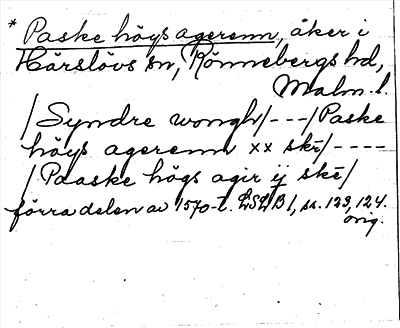 * Paske högs agerenn, åker i
Härslövs sn, Rönnebergs hd,
Malm. l.
/Syndre wongh/---/Paske
högs agerenn xx skē/----
/Paaske högs agir ij skē/
förra delen av 1570-t. LSLB1, ss. 123, 124.
orig.